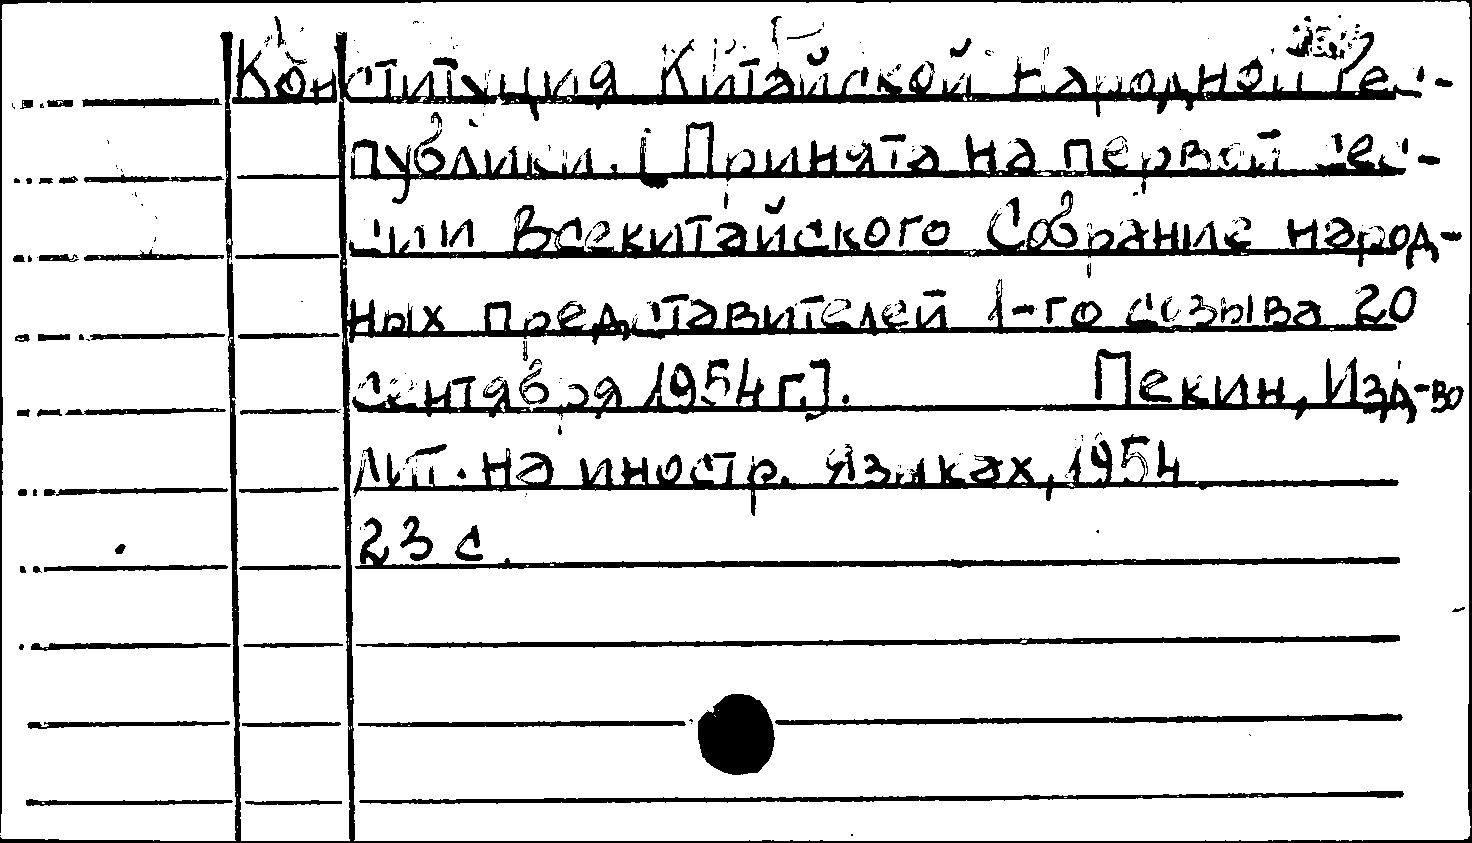 Конституция Китайской Народной Рес-
публики. [Принята на первой сес-
сии Всекитайского Собрание народ-
ных представителей 1-го созыва 20
сентября 1954 г.]. Пекин, Изд-во
лит. на иностр. языках, 1954
23 с.